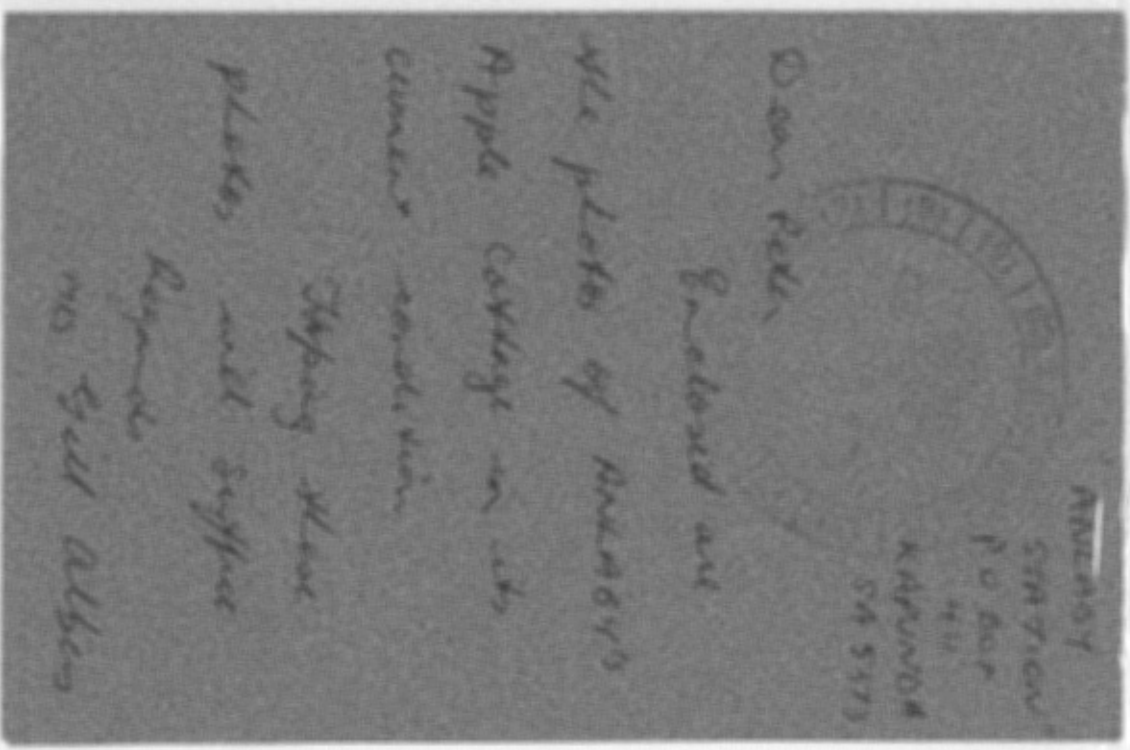 ANLABY
STATION
PO BOX
411
KAPUNDA
SA 5373
Dear Peter,
Enclosed are
the photos of ANLABY'S
Apple Cottage in its
current condition
Hoping these
photos will suffice
Regards
Gill